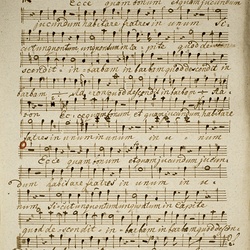 Ecce quam bonum et quam jucundum
jucundum habitare fratres in unum Si-
cut unguentum unguentum in capite quod de-
scendit in barbam in barbam quod descendit in
barbam Aaron quod descendit in barbam Aa-
ron Ecce quam bonum et quam jucundum habitare
fratres in unum in unum in unum
Ecce quam bonum et quam jucundum jucun-
dum habitare fratres in unum in u-
num Sicut unguentum unguentum in capite
quod descendit in barbam in barbam quod descen-